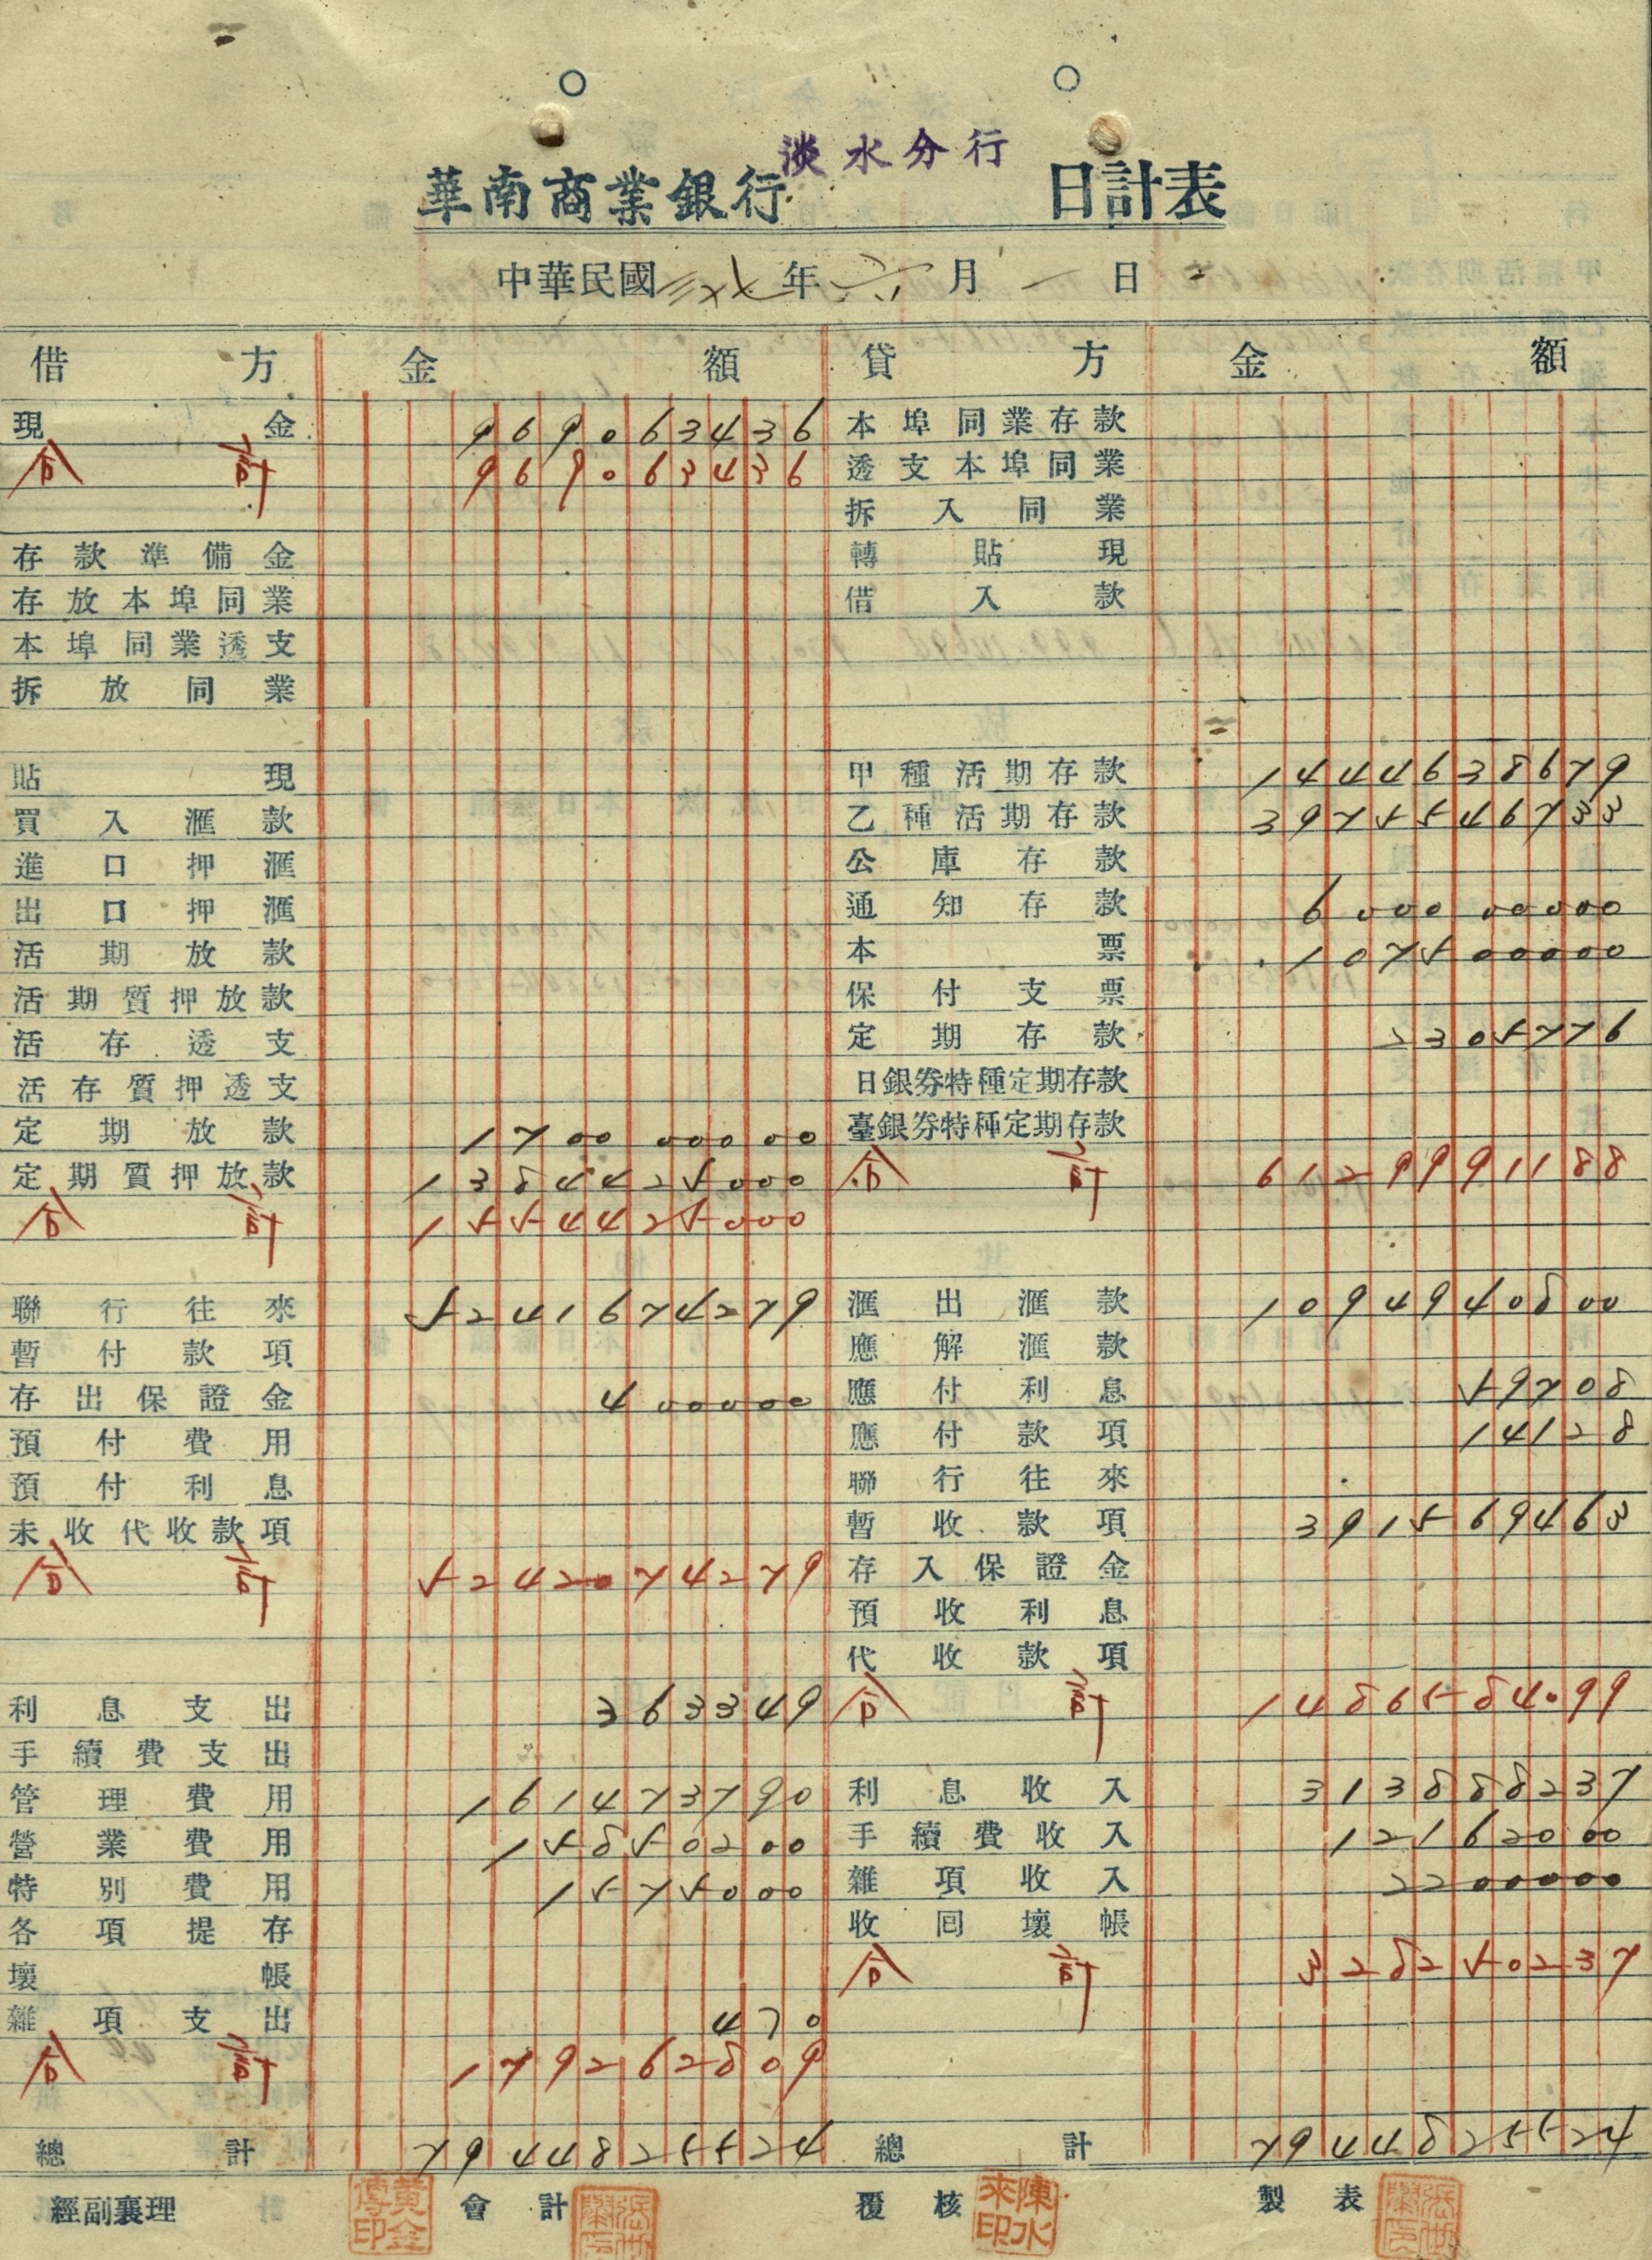 淡水分行
華南商業銀行 日計表
中華民國三十七年六月一日
借方 金額 貸方 金額
現金 969063436 本埠同業存款
合計 969063436 透支本埠同業
拆入同業
存款準備金 轉貼現
存放本埠同業 借入款
本埠同業透支
拆放同業
貼現 甲種活期存款 1444638679
買入滙款 乙種活期存款 3975546733
進口押滙 公庫存款
出口押滙 通知存款 600000000
活期放款 本票 107500000
活期質押放款 保付支票
活存透支 定期存款 2305776
活存質押透支 日銀券特種定期存款
定期放款 170000000 臺銀券特種定期存款
定期質押放款 1384425000 合計 6129991188
合計 1554425000
聯行往來 5241674279 滙出滙款 1094940800
暫付款項 應解滙款
存出保證金 400000 應付利息 59708
預付費用 應付款項 14128
預付利息 聯行往來
未收代收款項 暫收款項 391569463
合計 5242074279 存入保證金
預收利息
代收款項
利息支出 363349 合計 1486584099
手續費支出
管理費用 161473790 利息收入 313888237
營業費用 15850200 手續費收入 12162000
特別費用 1575000 雜項收入 2200000
各項提存 收回壞帳
壞帳 合計 328250237
雜項支出 470
合計 179262809
總計 7944825524 總計 7944825524
經副襄理 會計 覆核 陳水來印 製表